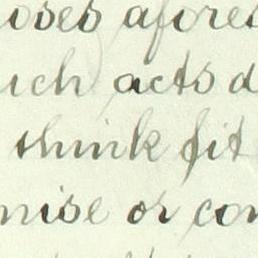 oses afores
uch acts d
think fit
mise or com